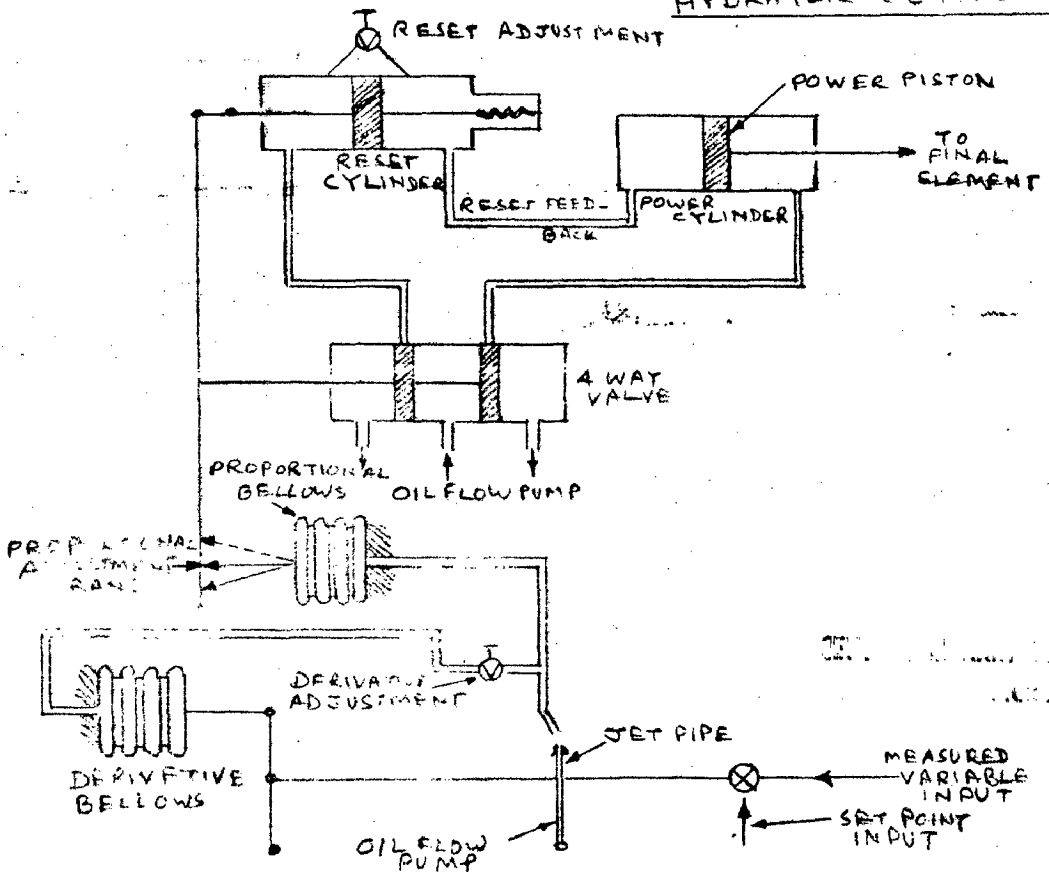 RESET ADJUSTMENT
POWER PISTON
TO
FINAL
ELEMENT
RESET
CYLINDER
RESET FEED-
BACK
POWER
CYLINDER
4 WAY
VALVE
PROPORTIONAL
BELLOWS
OIL FLOW PUMP
DERIVATIVE
ADJUSTMENT
JET PIPE
DERIVETIVE
BELLOWS
MEASURED
VARIABLE
INPUT
SET POINT
INPUT
OIL FLOW
PUMP